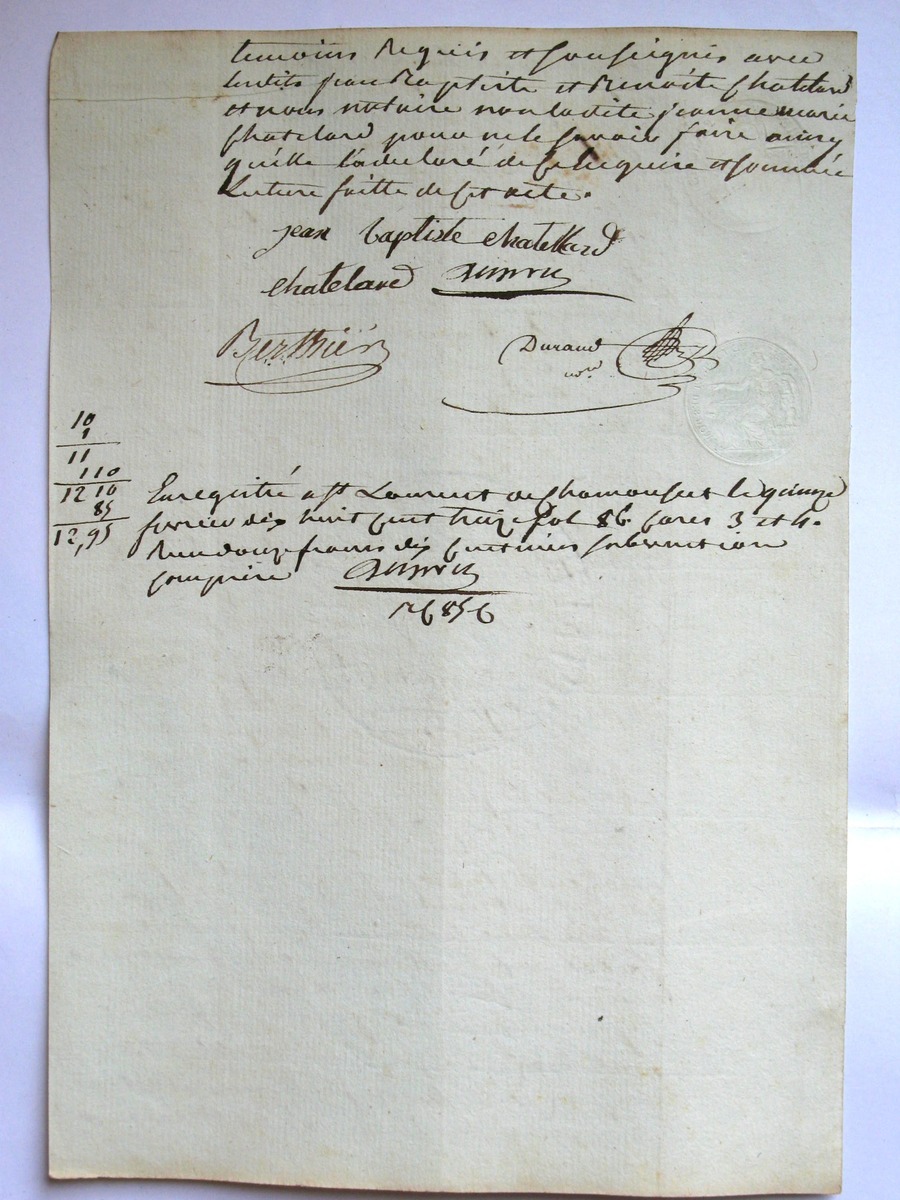 temoins Requis et soussignés avec
lesdits jean Baptiste et Benoite Chatelard
et nous notaire non ladite jeanne marie
Chatelard pour ne le savoir faire ainsy
qu'elle l'a declaré de ce Requise et sommée
Lecture faitte de cet acte.
jean baptiste chatellard
chatelard
Berthier
Durand
nore
10
1
11
1 10
12 10
85
12,95
Enregistré a St Laurent de Chamousset le quinze
fevrier dix huit cent treize fol 86 cases 3 et 4.
Reçu douze francs dix centimes subvention
comprise